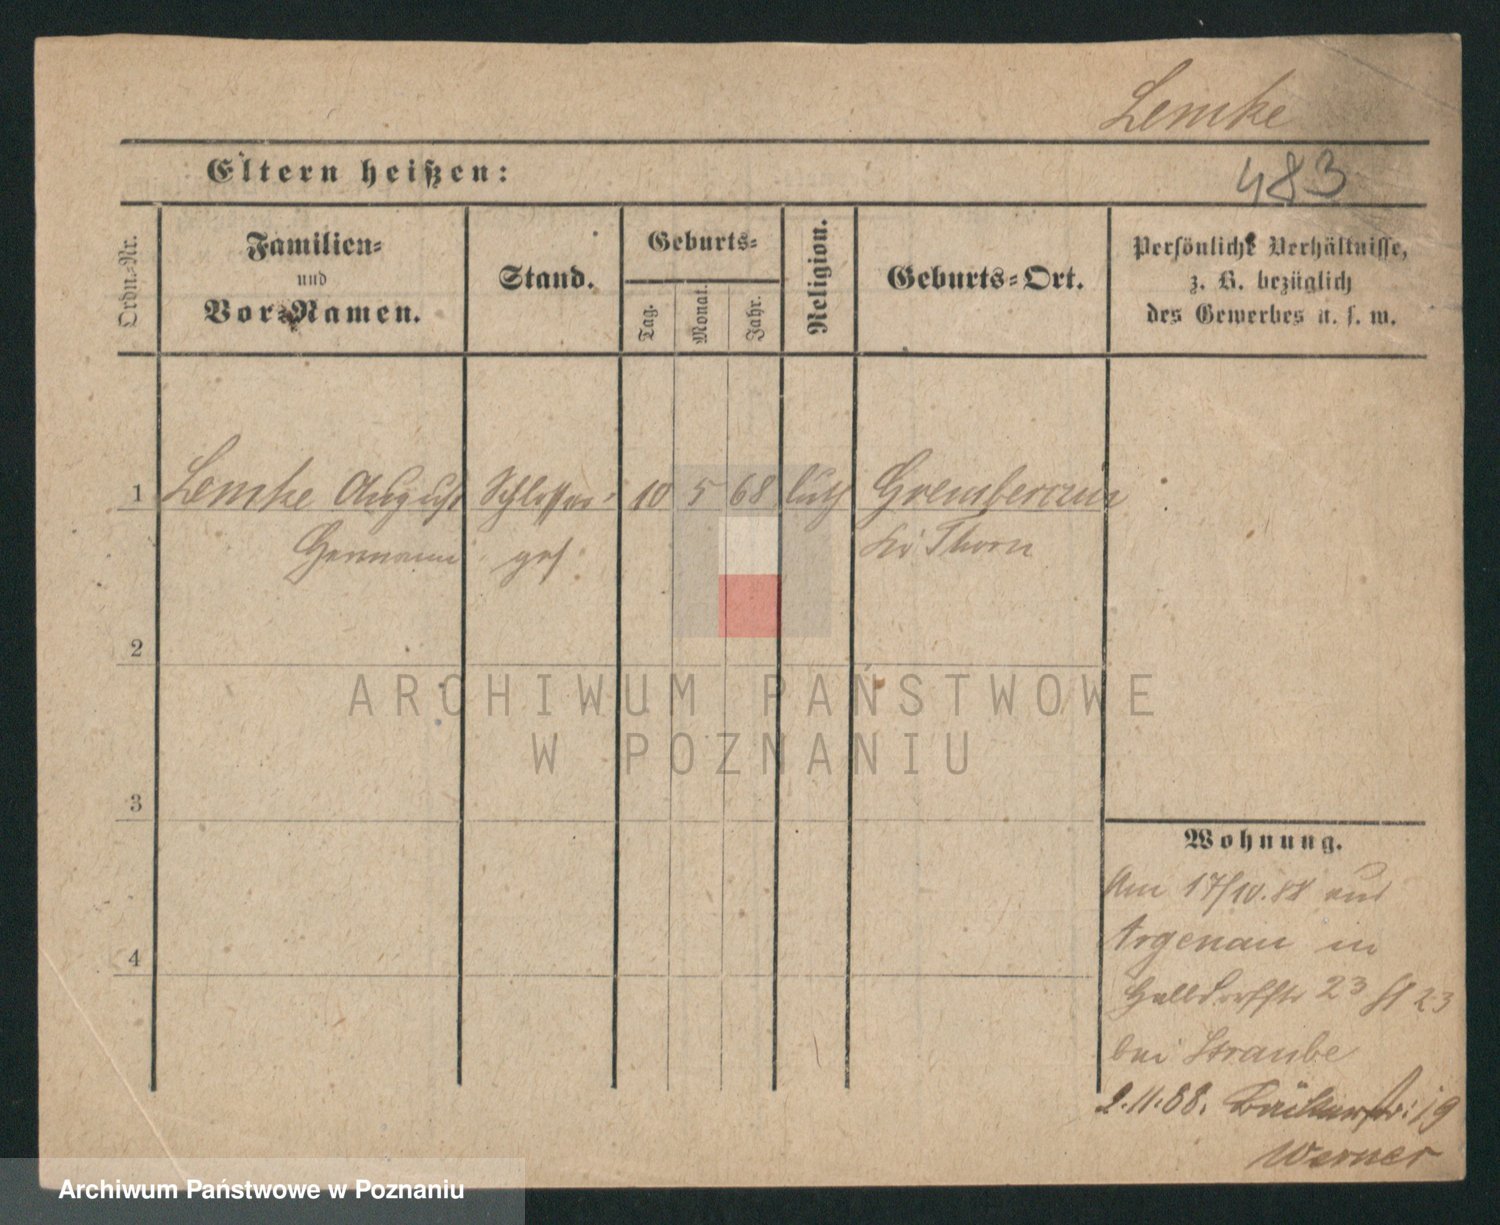 Lemke
Eltern heißen:
483
Ordn.-Nr.
Familien-
und
Vor-Namen.
Stand.
Geburts-
Tag.
Monat.
Jahr.
Religion.
Geburts-Ort.
Persönliche Verhältnisse,
z. B. bezüglich
des Gewerbes u. s. w.
1 Lemke August Schlosser- 10 5 68 luth
Hermann ges
Thorn
2
ARCHIWUM PAŃSTWOWE
W POZNANIU
3
Wohnung.
Am 17/10.88 aus
Argenau in
Halldorffstr 23 23
bei Straube
4
2.11.88. Bäckerstr: 19
Werner
Archiwum Państwowe w Poznaniu